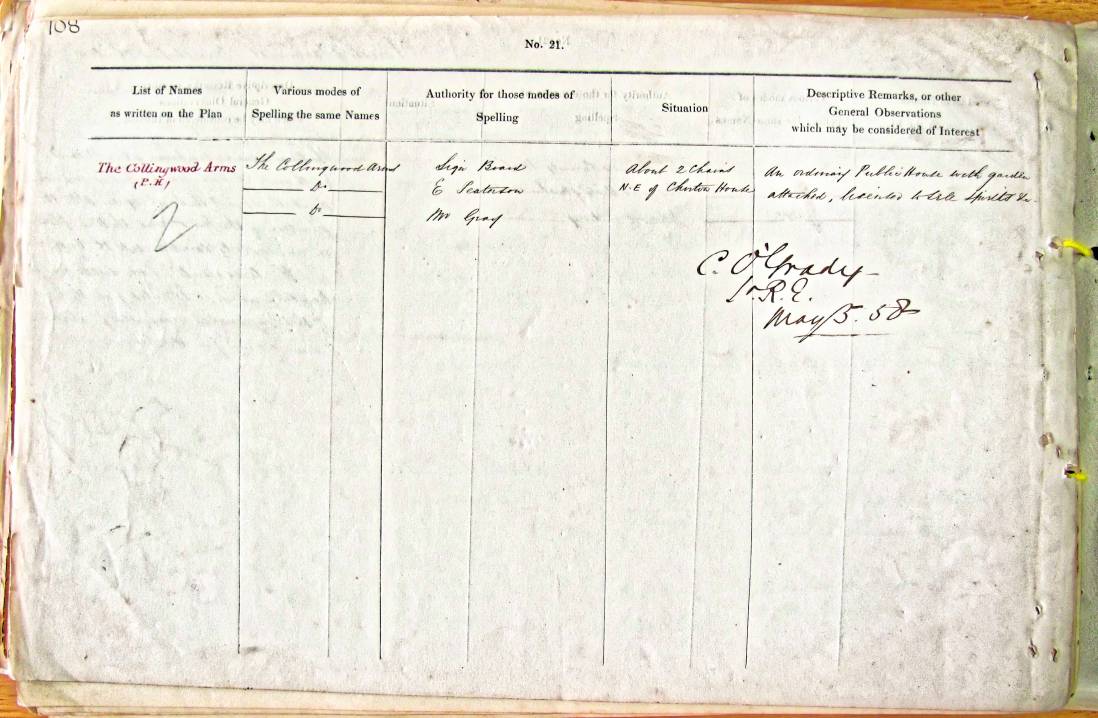 108
No. 21.
List of Names
as written on the Plan
Various modes of
Spelling the same Names
Authority for those modes of
Spelling
Situation
Descriptive Remarks, or other
General Observations
which may be considered of Interest
The Collingwood Arms
(P.H)
The Collingwood Arms
Do
Do
Sign Board
E
Mr Gray
About 2 Chains
N.E of Chirton House
An ordinary Public House with garden
attached, licensed to sell Spirits &c.
2
C. O'Grady
R.E.
May 5. 58